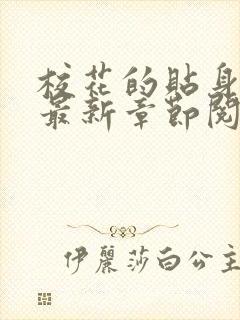 校花的貼身
最新章節閱
伊麗莎白公主